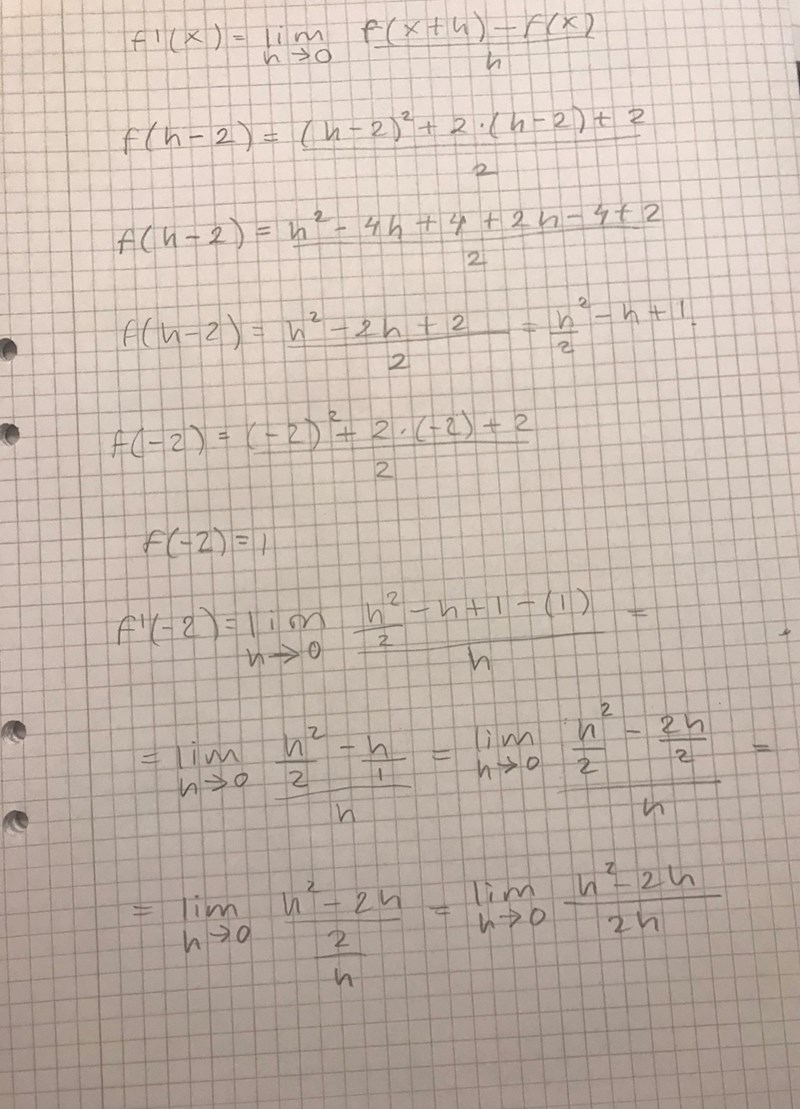 f'(x) = lim h→0 (f(x+h) − f(x))/h
f(h−2) = ((h−2)² + 2·(h−2) + 2)/2
f(h−2) = (h² − 4h + 4 + 2h − 4 + 2)/2
f(h−2) = (h² − 2h + 2)/2 = h²/2 − h + 1.
f(−2) = ((−2)² + 2·(−2) + 2)/2
f(−2) = 1
f'(−2) = lim h→0 (h²/2 − h + 1 − (1))/h =
= lim h→0 (h²/2 − h/1)/h = lim h→0 (h²/2 − 2h/2)/h =
= lim h→0 ((h² − 2h)/2)/h = lim h→0 (h² − 2h)/2h